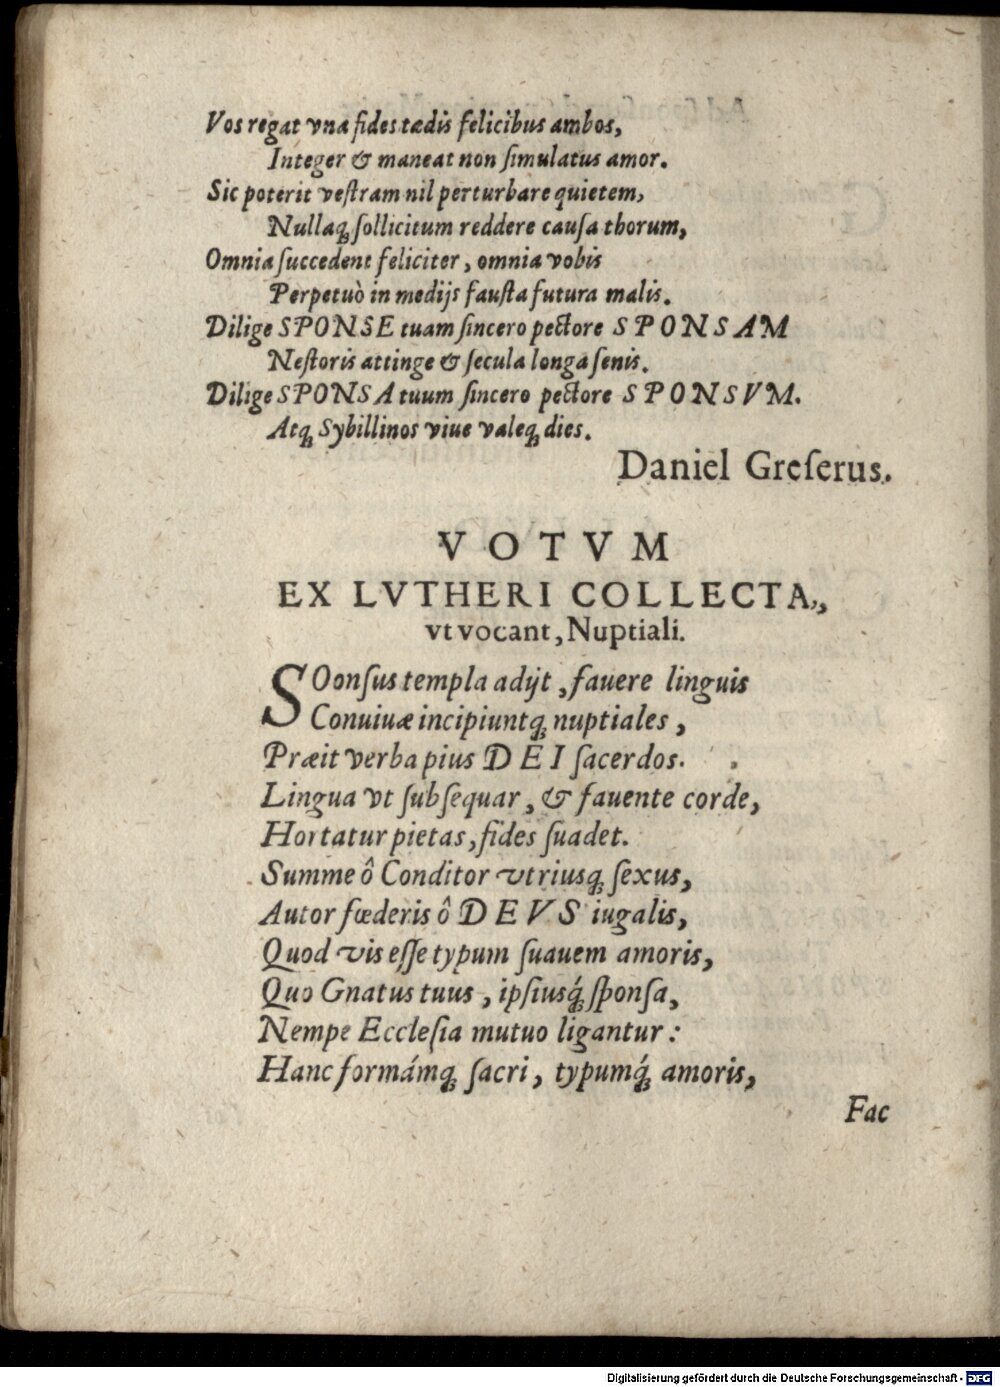 Vos regat vna fides tædis felicibus ambos,
Integer & maneat non ſimulatus amor.
Sic poterit veſtram nil perturbare quietem,
Nullaq́ꝫ ſollicitum reddere cauſa thorum,
Omnia ſuccedent feliciter, omnia vobis
Perpetuò in medijs fauſta futura malis.
Dilige SPONSE tuam ſincero pectore SPONSAM
Neſtoris attinge & ſecula longa ſenis.
Dilige SPONSA tuum ſincero pectore SPONSVM.
Atqꝫ Sybillinos viue valeqꝫ dies.
Daniel Greſerus.
VOTVM
EX LVTHERI COLLECTA,
vt vocant, Nuptiali.
SOonſus templa adijt, fauere linguis
Conuiuæ incipiuntqꝫ nuptiales,
Præit verba pius DEI ſacerdos.
Lingua vt ſubſequar, & fauente corde,
Hortatur pietas, fides ſuadet.
Summe ô Conditor vtriusqꝫ ſexus,
Autor fœderis ô DEVS iugalis,
Quod vis eſſe typum ſuauem amoris,
Quo Gnatus tuus, ipſiusq́ꝫ ſponſa,
Nempe Eccleſia mutuo ligantur:
Hanc formámqꝫ ſacri, typumq́ꝫ amoris,
Fac
Digitalisierung gefördert durch die Deutsche Forschungsgemeinschaft - DFG